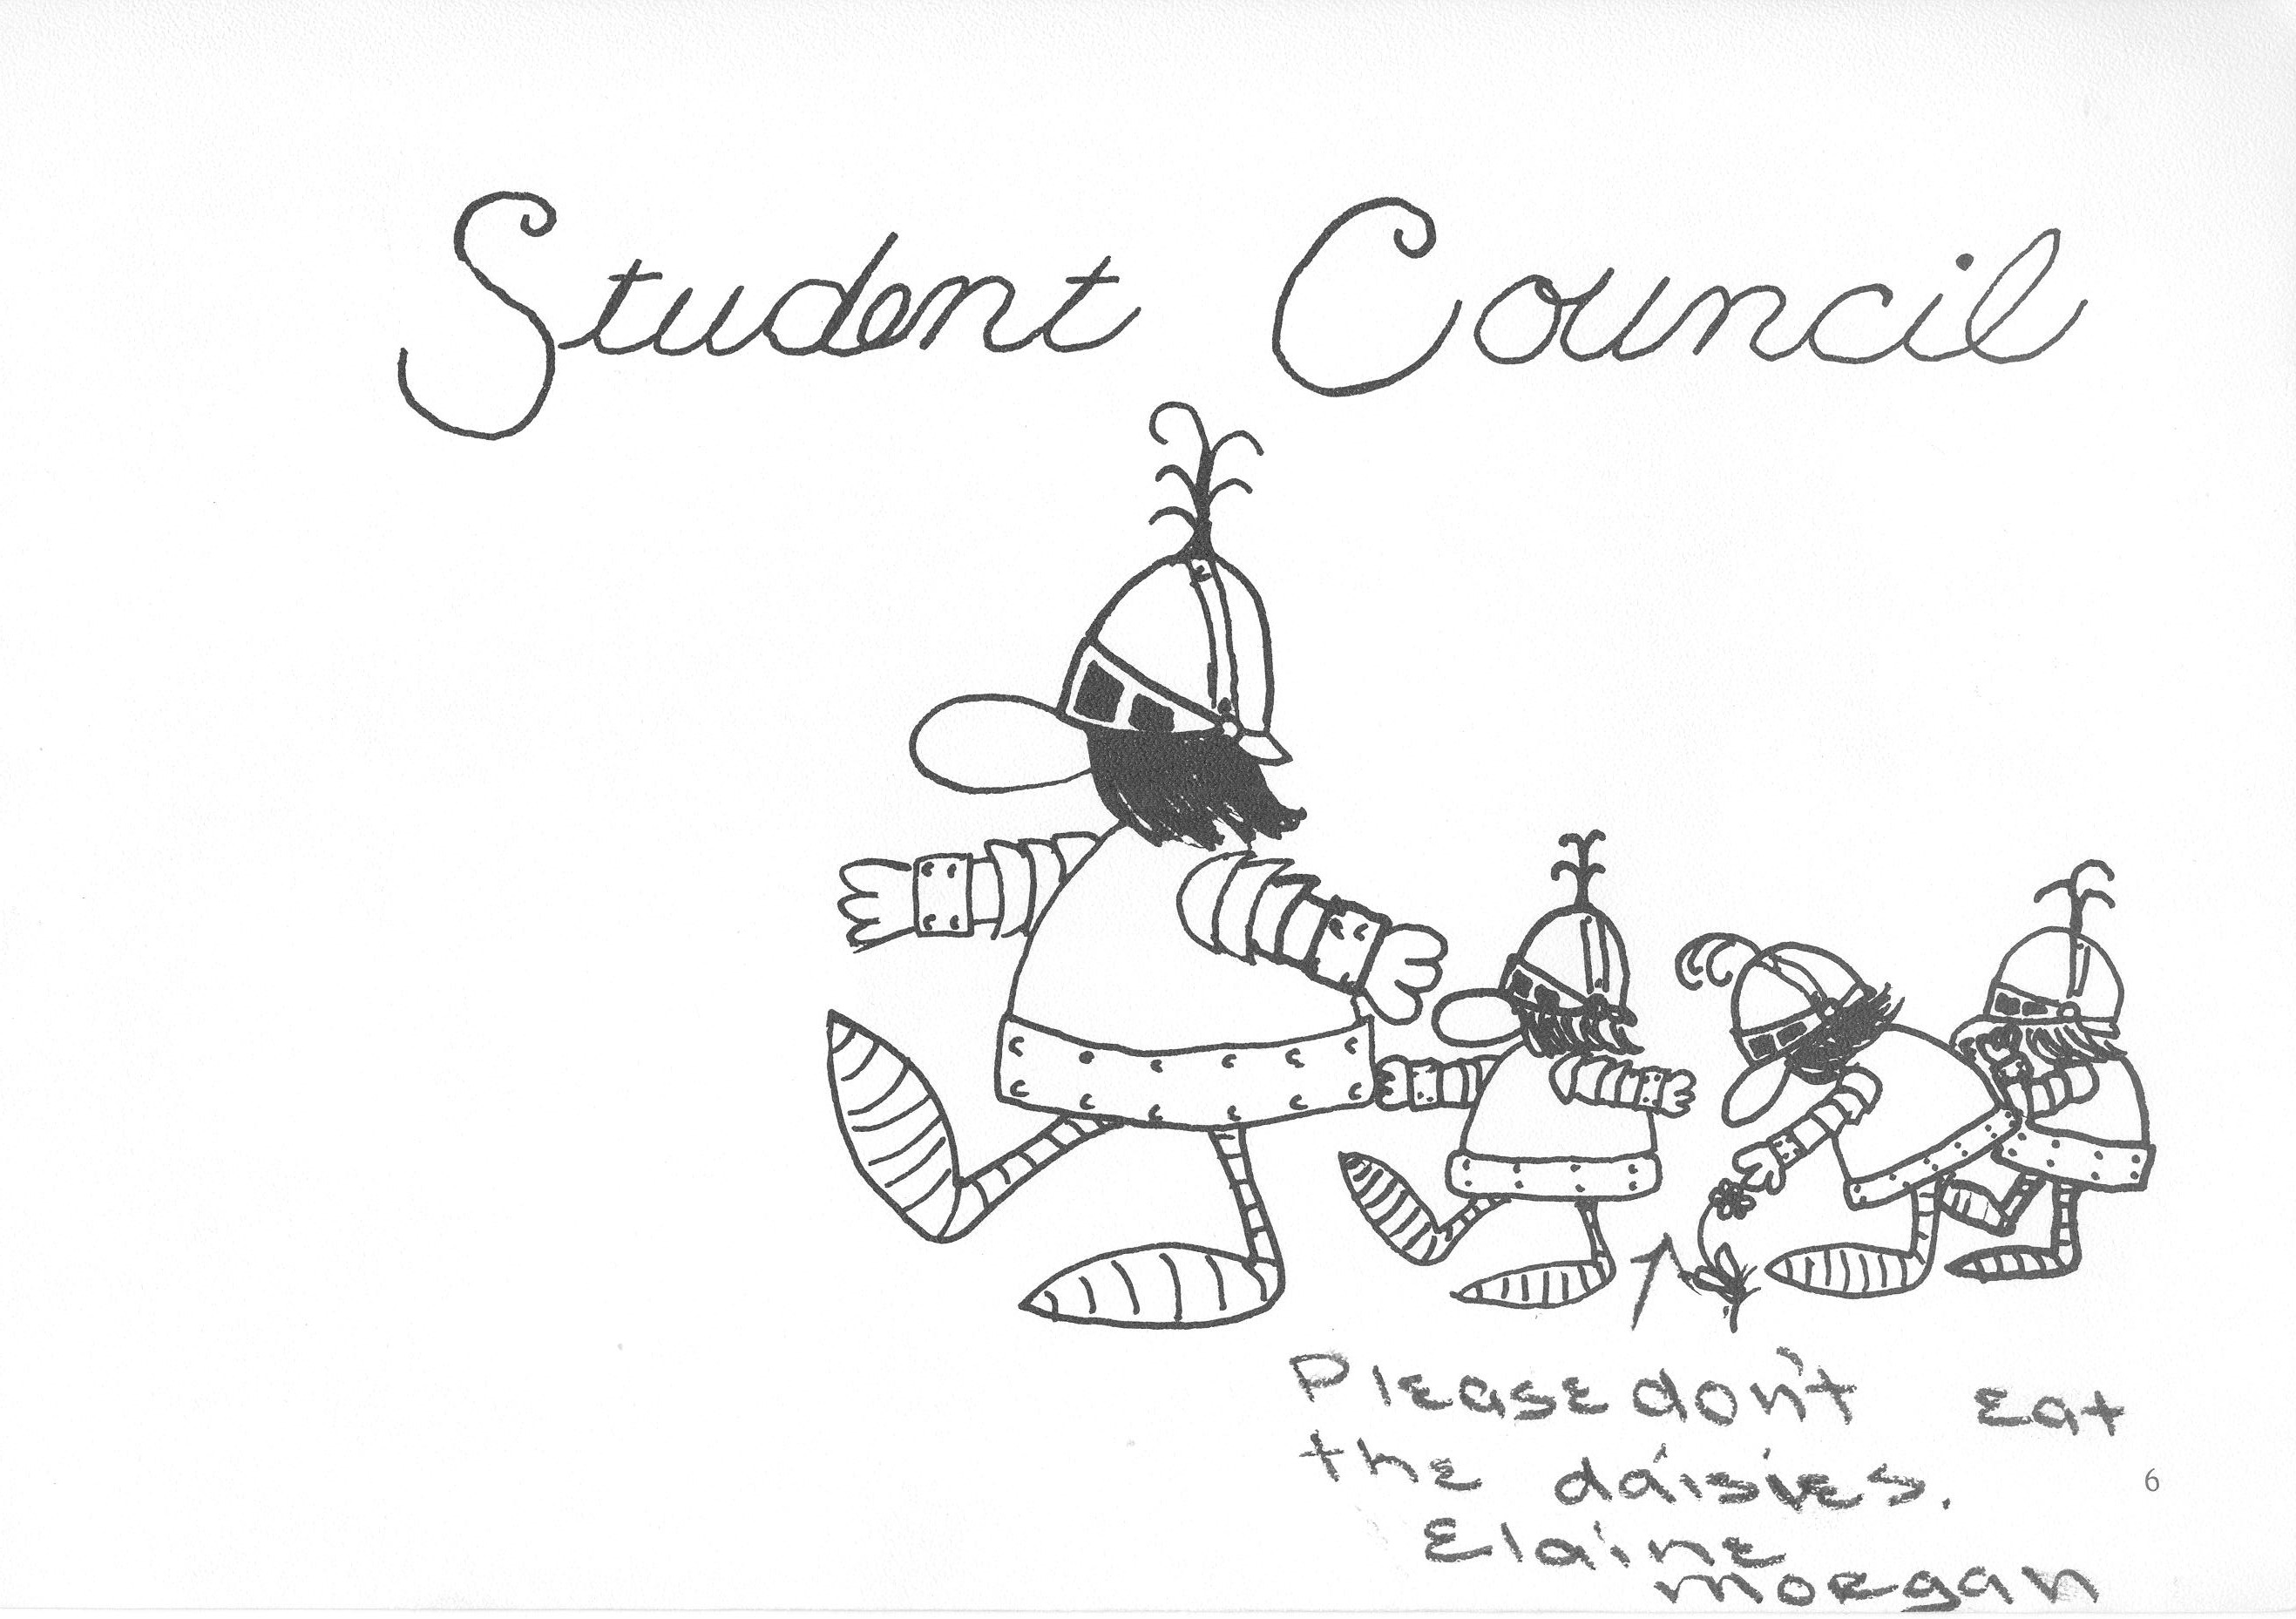 Student Council
Please don't eat
the daisies.
6
Elaine
Morgan